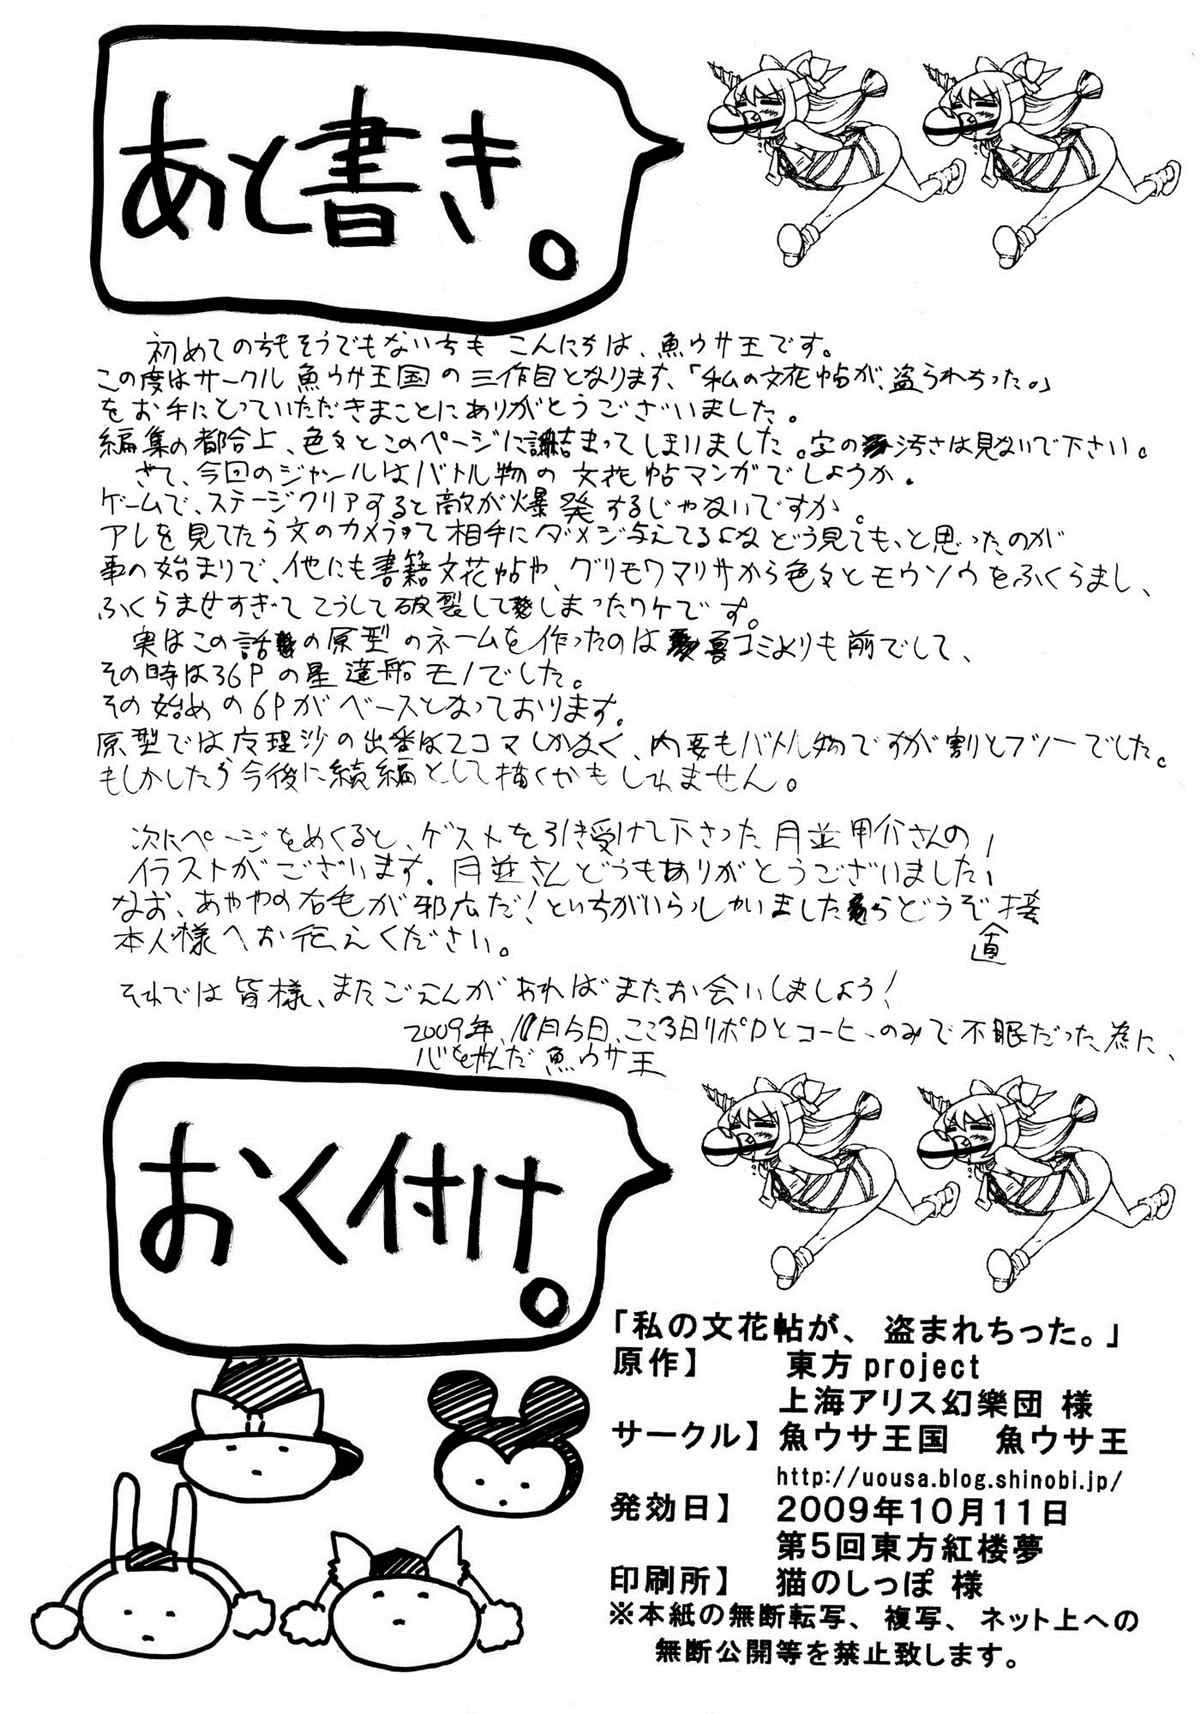 あと書き。
初めての方もそうでもない方も こんにちは、魚ウサ王です。
この度はサークル魚ウサ王国の三作目となります、「私の文花帖が、盗られちった。」
をお手にとっていただきまことにありがとうございました。
編集の都合上、色々とこのページに詰まってしまいました。字の汚さは見ないで下さい。
さて、今回のジャンルはバトル物の文花帖マンガでしょうか。
ゲームで、ステージクリアすると敵が爆発するじゃないですか。
アレを見てたら文のカメラって相手にダメージ与えてるよなどう見ても、と思ったのが
事の始まりで、他にも書籍文花帖や、グリモワマリサから色々とモウソウをふくらまし、
ふくらませすぎてこうして破裂してしまったワケです。
実はこの話の原型のネームを作ったのは夏コミよりも前でして、
その時は36Pの星蓮船モノでした。
その始めの6Pがベースとなっております。
原型では魔理沙の出番は2コマしかなく、内容もバトル物ですが割とフツーでした。
もしかしたら今後に続編として描くかもしれません。
次にページをめくると、ゲストを引き受けて下さった月並甲介さんの
イラストがございます。月並さんどうもありがとうございました!
なお、あややの右毛が邪広だ!という方がいらっしゃいましたらどうぞ直接
本人様へお伝えください。
それでは皆様、またごえんがあればまたお会いしましょう!
2009年、10月5日、ここ3日リポDとコーヒーのみで不眠だった為に、
心をやんだ魚ウサ王
おく付け。
「私の文花帖が、盗まれちった。」
原作】 東方project
上海アリス幻樂団 様
サークル】 魚ウサ王国 魚ウサ王
http://uousa.blog.shinobi.jp/
発効日】 2009年10月11日
第5回東方紅楼夢
印刷所】 猫のしっぽ 様
※本紙の無断転写、複写、ネット上への
無断公開等を禁止致します。